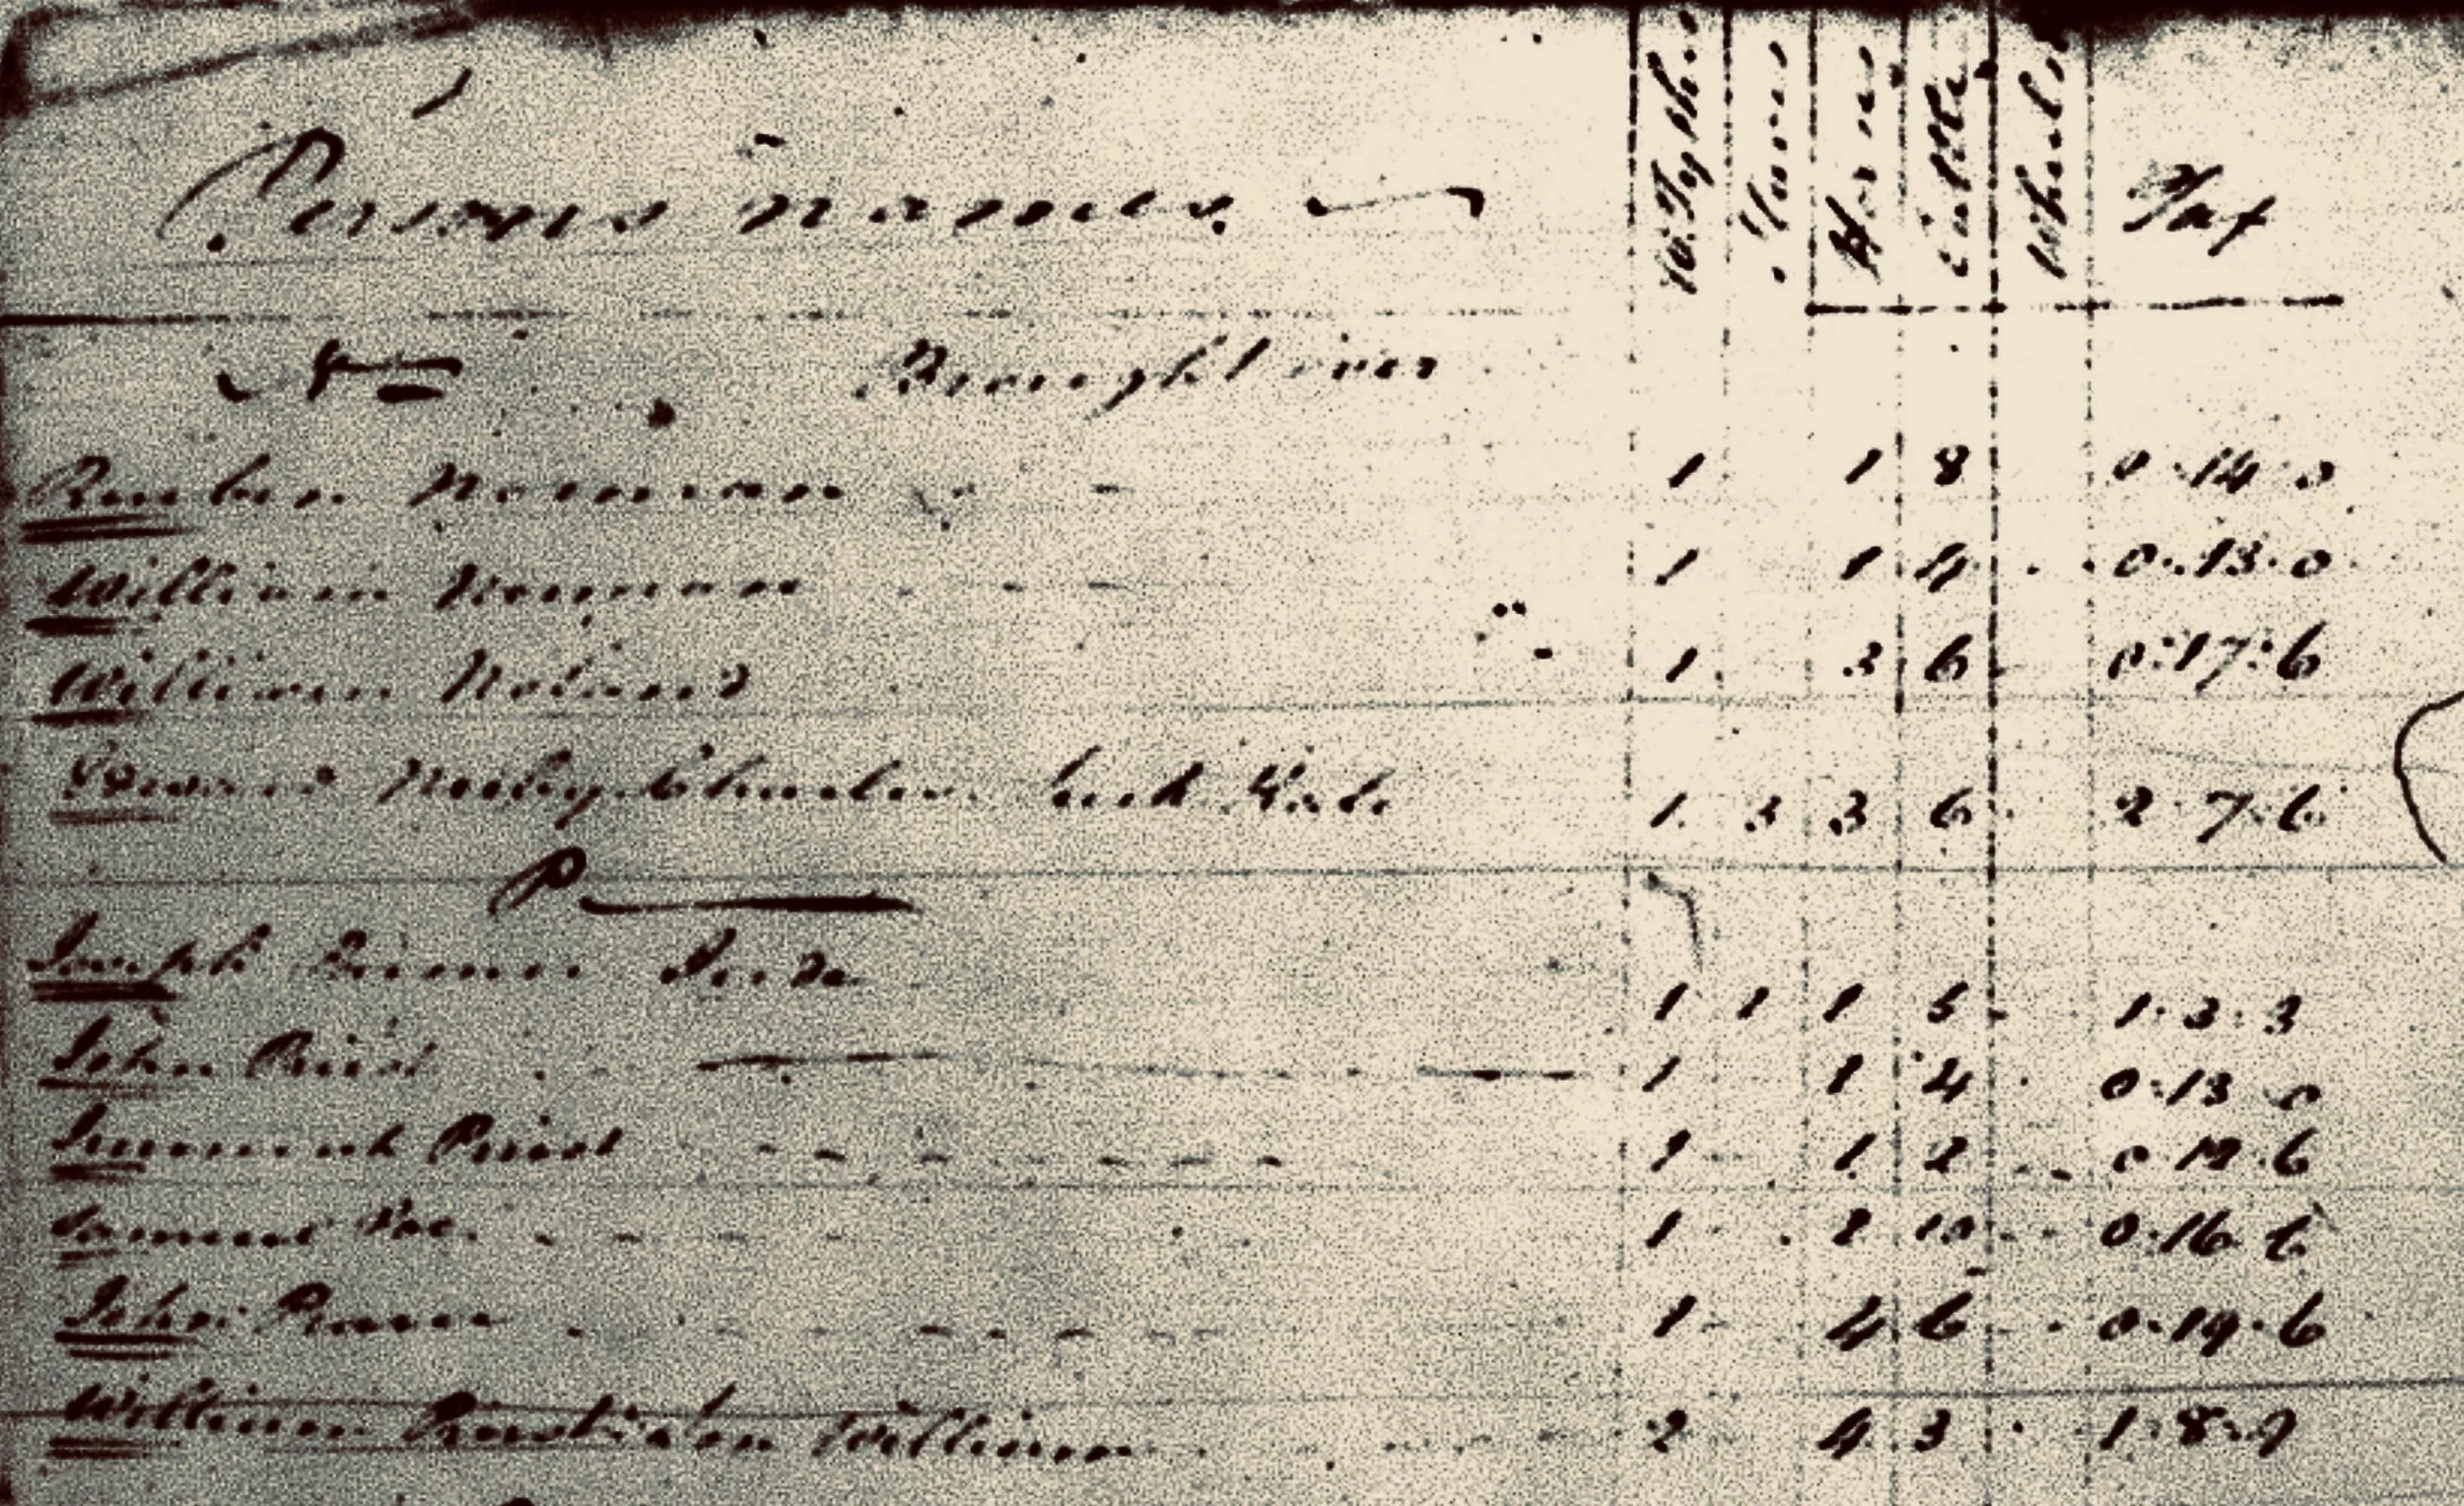 Persons names. W. Tyths Slaves Horses Cattle Wheels Tax
N Brought over
Reuben Norman 1 1 8 0 14 0
William Norman 1 1 4 0 13 0
William Noland 1 3 6 0 17 6
Neilly Charles 1 3 3 6 2 7 6
P
Joseph 1 1 1 5 1 3 3
John Priest 1 1 4 0 13 0
Priest 1 1 2 0 12 6
Samuel Poe 1 2 10 0 16 6
John 1 4 6 0 19 6
William William 2 4 3 1 8 9